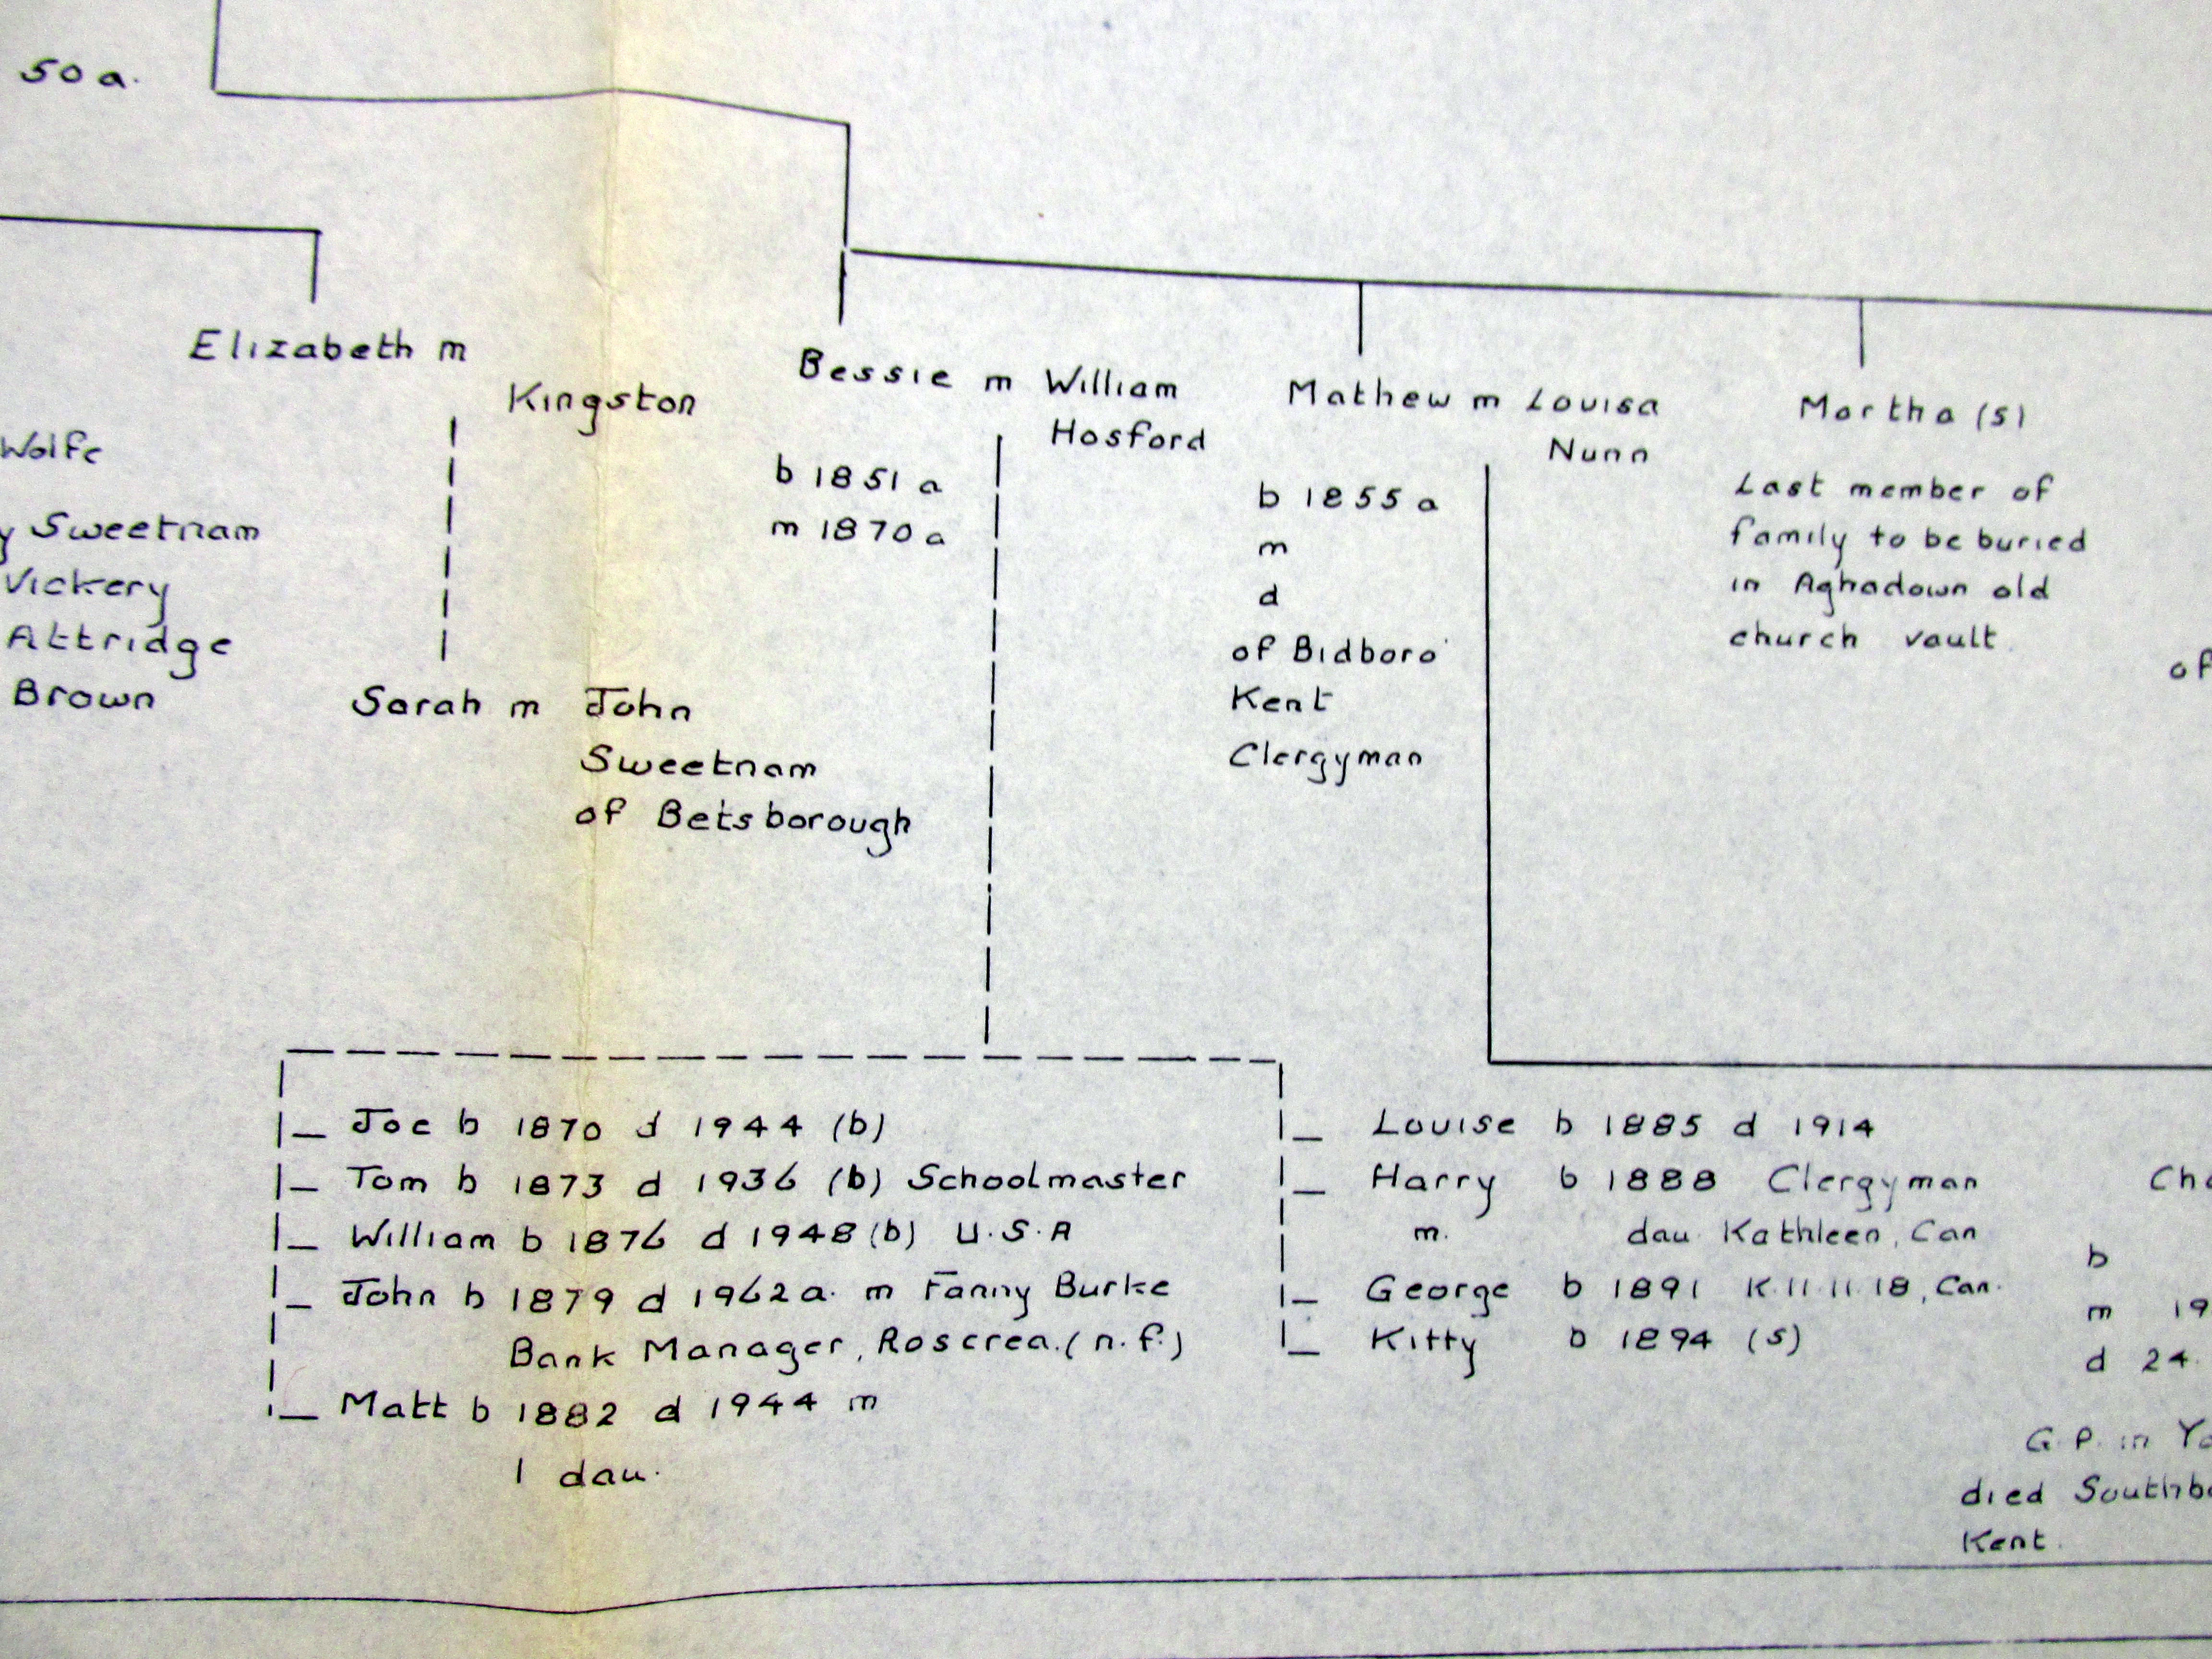 50 a.
Elizabeth m
Kingston
Wolfe
y Sweetnam
Vickery
Attridge
Brown
Sarah m John
Sweetnam
of Betsborough
Bessie m William
Hosford
b 1851 a
m 1870 a
Mathew m Louisa
Nunn
b 1855 a
m
d
of Bidboro'
Kent
Clergyman
Martha (s)
Last member of
family to be buried
in Aghadown old
church vault
of
Joe b 1870 d 1944 (b)
Tom b 1873 d 1936 (b) Schoolmaster
William b 1876 d 1948 (b) U.S.A
John b 1879 d 1962 a. m Fanny Burke
Bank Manager, Roscrea. (n.f.)
Matt b 1882 d 1944 m
1 dau.
Louise b 1885 d 1914
Harry b 1888 Clergyman
m. dau Kathleen, Can
George b 1891 K.11.11.18, Can.
Kitty b 1894 (s)
b
m 19
d 24.
G.P. in
died
Kent.